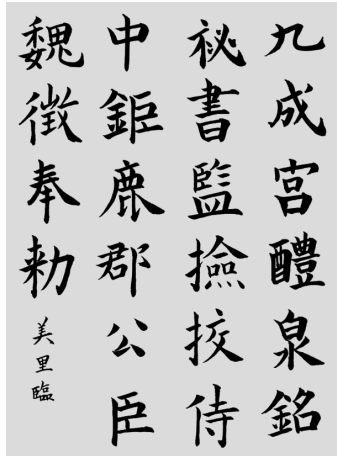 九成宮醴泉銘
祕書監撿挍侍
中鉅鹿郡公臣
魏徵奉勅
美里臨